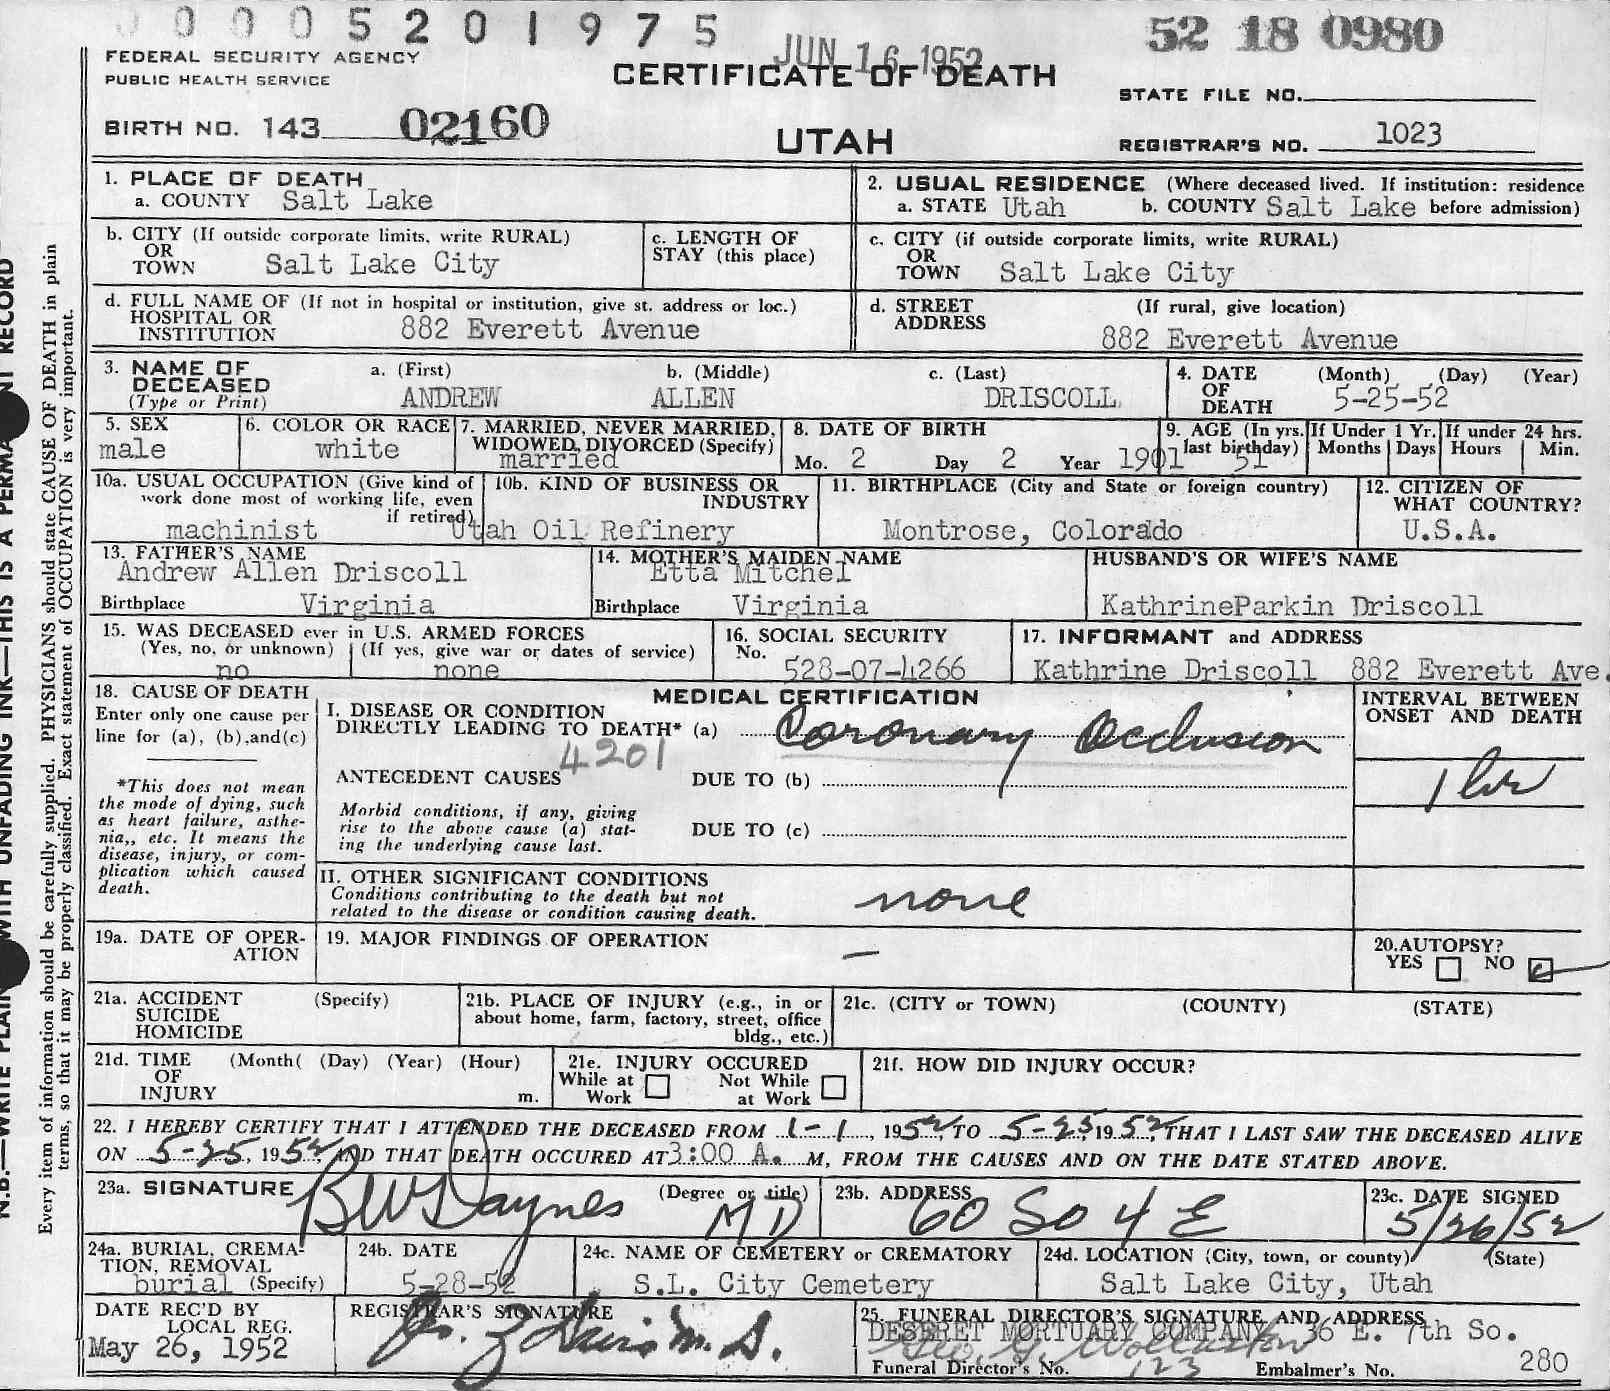 0 0 0 5 2 0 1 9 7 5
JUN 16 1952
52 18 0980
FEDERAL SECURITY AGENCY
PUBLIC HEALTH SERVICE
CERTIFICATE OF DEATH
STATE FILE NO.
BIRTH NO. 143 02160
UTAH
REGISTRAR'S NO. 1023
1. PLACE OF DEATH
a. COUNTY Salt Lake
2. USUAL RESIDENCE (Where deceased lived. If institution: residence
a. STATE Utah b. COUNTY Salt Lake before admission)
b. CITY (If outside corporate limits, write RURAL)
OR
TOWN Salt Lake City
c. LENGTH OF
STAY (this place)
c. CITY (if outside corporate limits, write RURAL)
OR
TOWN Salt Lake City
d. FULL NAME OF (If not in hospital or institution, give st. address or loc.)
HOSPITAL OR
INSTITUTION 882 Everett Avenue
d. STREET (If rural, give location)
ADDRESS
882 Everett Avenue
3. NAME OF
DECEASED
(Type or Print)
a. (First) b. (Middle) c. (Last)
ANDREW ALLEN DRISCOLL
4. DATE (Month) (Day) (Year)
OF
DEATH 5-25-52
5. SEX
male
6. COLOR OR RACE
white
7. MARRIED, NEVER MARRIED,
WIDOWED, DIVORCED (Specify)
married
8. DATE OF BIRTH
Mo. 2 Day 2 Year 1901
9. AGE (In yrs.
last birthday) 51
If Under 1 Yr.
Months Days
If under 24 hrs.
Hours Min.
10a. USUAL OCCUPATION (Give kind of
work done most of working life, even
if retired)
machinist
10b. KIND OF BUSINESS OR
INDUSTRY
Utah Oil Refinery
11. BIRTHPLACE (City and State or foreign country)
Montrose, Colorado
12. CITIZEN OF
WHAT COUNTRY?
U.S.A.
13. FATHER'S NAME
Andrew Allen Driscoll
Birthplace Virginia
14. MOTHER'S MAIDEN NAME
Etta Mitchel
Birthplace Virginia
HUSBAND'S OR WIFE'S NAME
KathrineParkin Driscoll
15. WAS DECEASED ever in U.S. ARMED FORCES
(Yes, no, or unknown) (If yes, give war or dates of service)
no none
16. SOCIAL SECURITY
No.
528-07-4266
17. INFORMANT and ADDRESS
Kathrine Driscoll 882 Everett Ave.
18. CAUSE OF DEATH
Enter only one cause per
line for (a), (b),and(c)
*This does not mean
the mode of dying, such
as heart failure, asthe-
nia,, etc. It means the
disease, injury, or com-
plication which caused
death.
MEDICAL CERTIFICATION
I. DISEASE OR CONDITION
DIRECTLY LEADING TO DEATH* (a) Coronary Occlusion
4201
ANTECEDENT CAUSES DUE TO (b)
Morbid conditions, if any, giving
rise to the above cause (a) stat-
ing the underlying cause last.
DUE TO (c)
INTERVAL BETWEEN
ONSET AND DEATH
1 hr
II. OTHER SIGNIFICANT CONDITIONS
Conditions contributing to the death but not
related to the disease or condition causing death.
none
19a. DATE OF OPER-
ATION
19. MAJOR FINDINGS OF OPERATION
—
20.AUTOPSY?
YES NO
21a. ACCIDENT (Specify)
SUICIDE
HOMICIDE
21b. PLACE OF INJURY (e.g., in or
about home, farm, factory, street, office
bldg., etc.)
21c. (CITY or TOWN) (COUNTY) (STATE)
21d. TIME (Month( (Day) (Year) (Hour)
OF
INJURY m.
21e. INJURY OCCURED
While at Not While
Work at Work
21f. HOW DID INJURY OCCUR?
22. I HEREBY CERTIFY THAT I ATTENDED THE DECEASED FROM 1-1, 1952, TO 5-25, 1952, THAT I LAST SAW THE DECEASED ALIVE
ON 5-25, 1952, AND THAT DEATH OCCURED AT 3:00 A. M, FROM THE CAUSES AND ON THE DATE STATED ABOVE.
23a. SIGNATURE BW Daynes (Degree or title) MD
23b. ADDRESS 60 So 4 E
23c. DATE SIGNED
5/26/52
24a. BURIAL, CREMA-
TION, REMOVAL
burial (Specify)
24b. DATE
5-28-52
24c. NAME OF CEMETERY or CREMATORY
S.L. City Cemetery
24d. LOCATION (City, town, or county) (State)
Salt Lake City, Utah
DATE REC'D BY
LOCAL REG.
May 26, 1952
REGISTRAR'S SIGNATURE
25. FUNERAL DIRECTOR'S SIGNATURE AND ADDRESS
DESERET MORTUARY COMPANY 36 E. 7th So.
Funeral Director's No. 123 Embalmer's No. 280
N.B.—WRITE PLAIN WITH UNFADING INK—THIS IS A PERMA NT RECORD
Every item of information should be carefully supplied. PHYSICIANS should state CAUSE OF DEATH in plain
terms, so that it may be properly classified. Exact statement of OCCUPATION is very important.